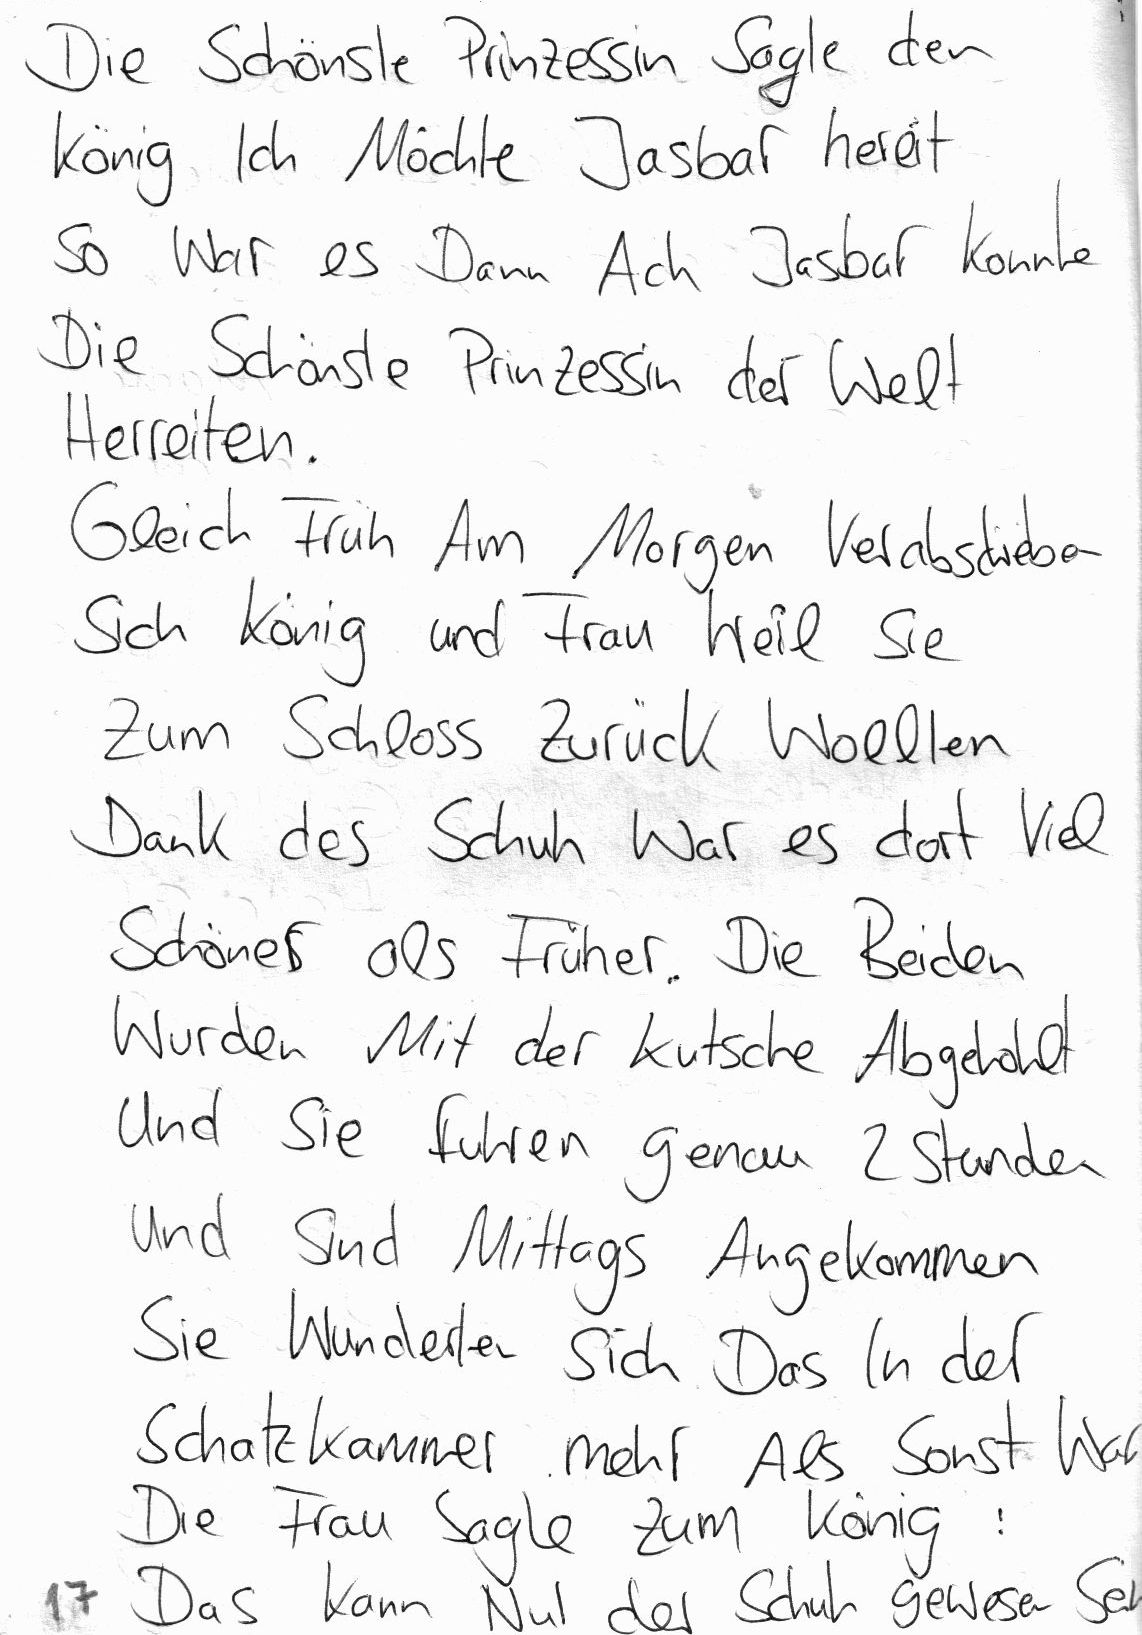 Die Schönste Prinzessin Sagte den
König Ich Möchte Jasbar hereit
So War es Dann Ach Jasbar Konnte
Die Schönste Prinzessin der Welt
Herreiten.
Gleich Früh Am Morgen Verabschieben
Sich König und Frau Weil Sie
Zum Schloss Zurück Wollten
Dank des Schuh War es dort Viel
Schöner als Früher. Die Beiden
Wurden Mit der Kutsche Abgehohlt
Und Sie fuhren genau 2 Stunden
Und Sind Mittags Angekommen
Sie Wunderten Sich Das In der
Schatzkammer mehr Als Sonst War
Die Frau Sagte Zum König :
17 Das kann Nur der Schuh gewesen Sein